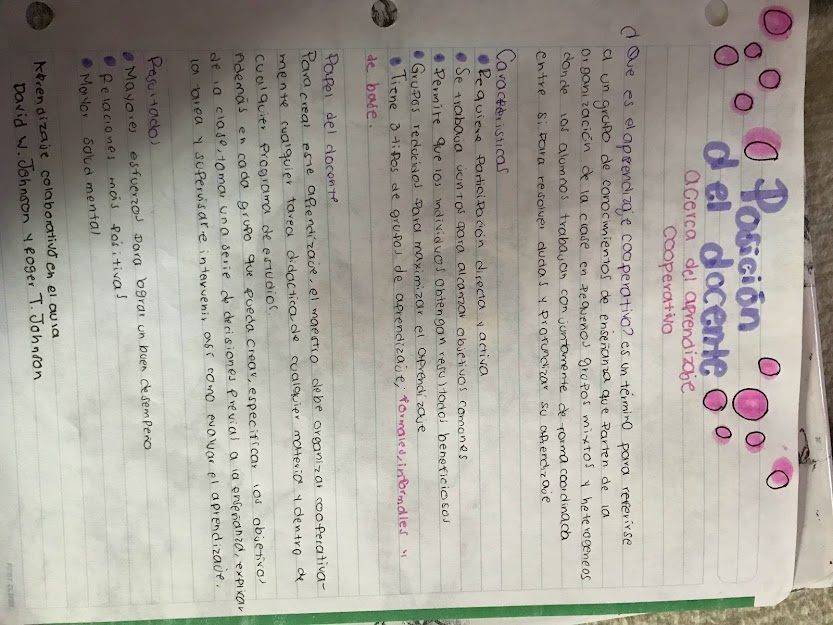 Posición
del docente
acerca del aprendizaje
cooperativo
¿Que es el aprendizaje cooperativo? es un término para referirse
a un grupo de conocimientos de enseñanza que parten de la
organización de la clase en pequeños grupos mixtos y heterogeneos
donde los alumnos trabajan conjuntamente de forma coordinada
entre si para resolver dudas y profundizar su aprendizaje
Caracteristicas
Requiere participación directa y activa
Se trabaja juntos para alcanzar objetivos comunes
Permite que los individuos obtengan resultados beneficiosos
Grupos reducidos para maximizar el aprendizaje
Tiene 3 tipos de grupos de aprendizaje; formales, informales y
de base.
Papel del docente
Para crear este aprendizaje, el maestro debe organizar cooperativa-
mente cualquier tarea didactica de cualquier materia y dentro de
cualquier programa de estudios.
Además en cada grupo que pueda crear, especificar los objetivos
de la clase, tomar una serie de decisiones previas a la enseñanza, explicar
la tarea y supervisar e intervenir asi como evaluar el aprendizaje.
Resultados
Mayores esfuerzos para lograr un buen desempeño
Relaciones más positivas
Mayor salud mental
Aprendizaje colaborativo en el aula
David W. Johnson y Roger T. Johnson